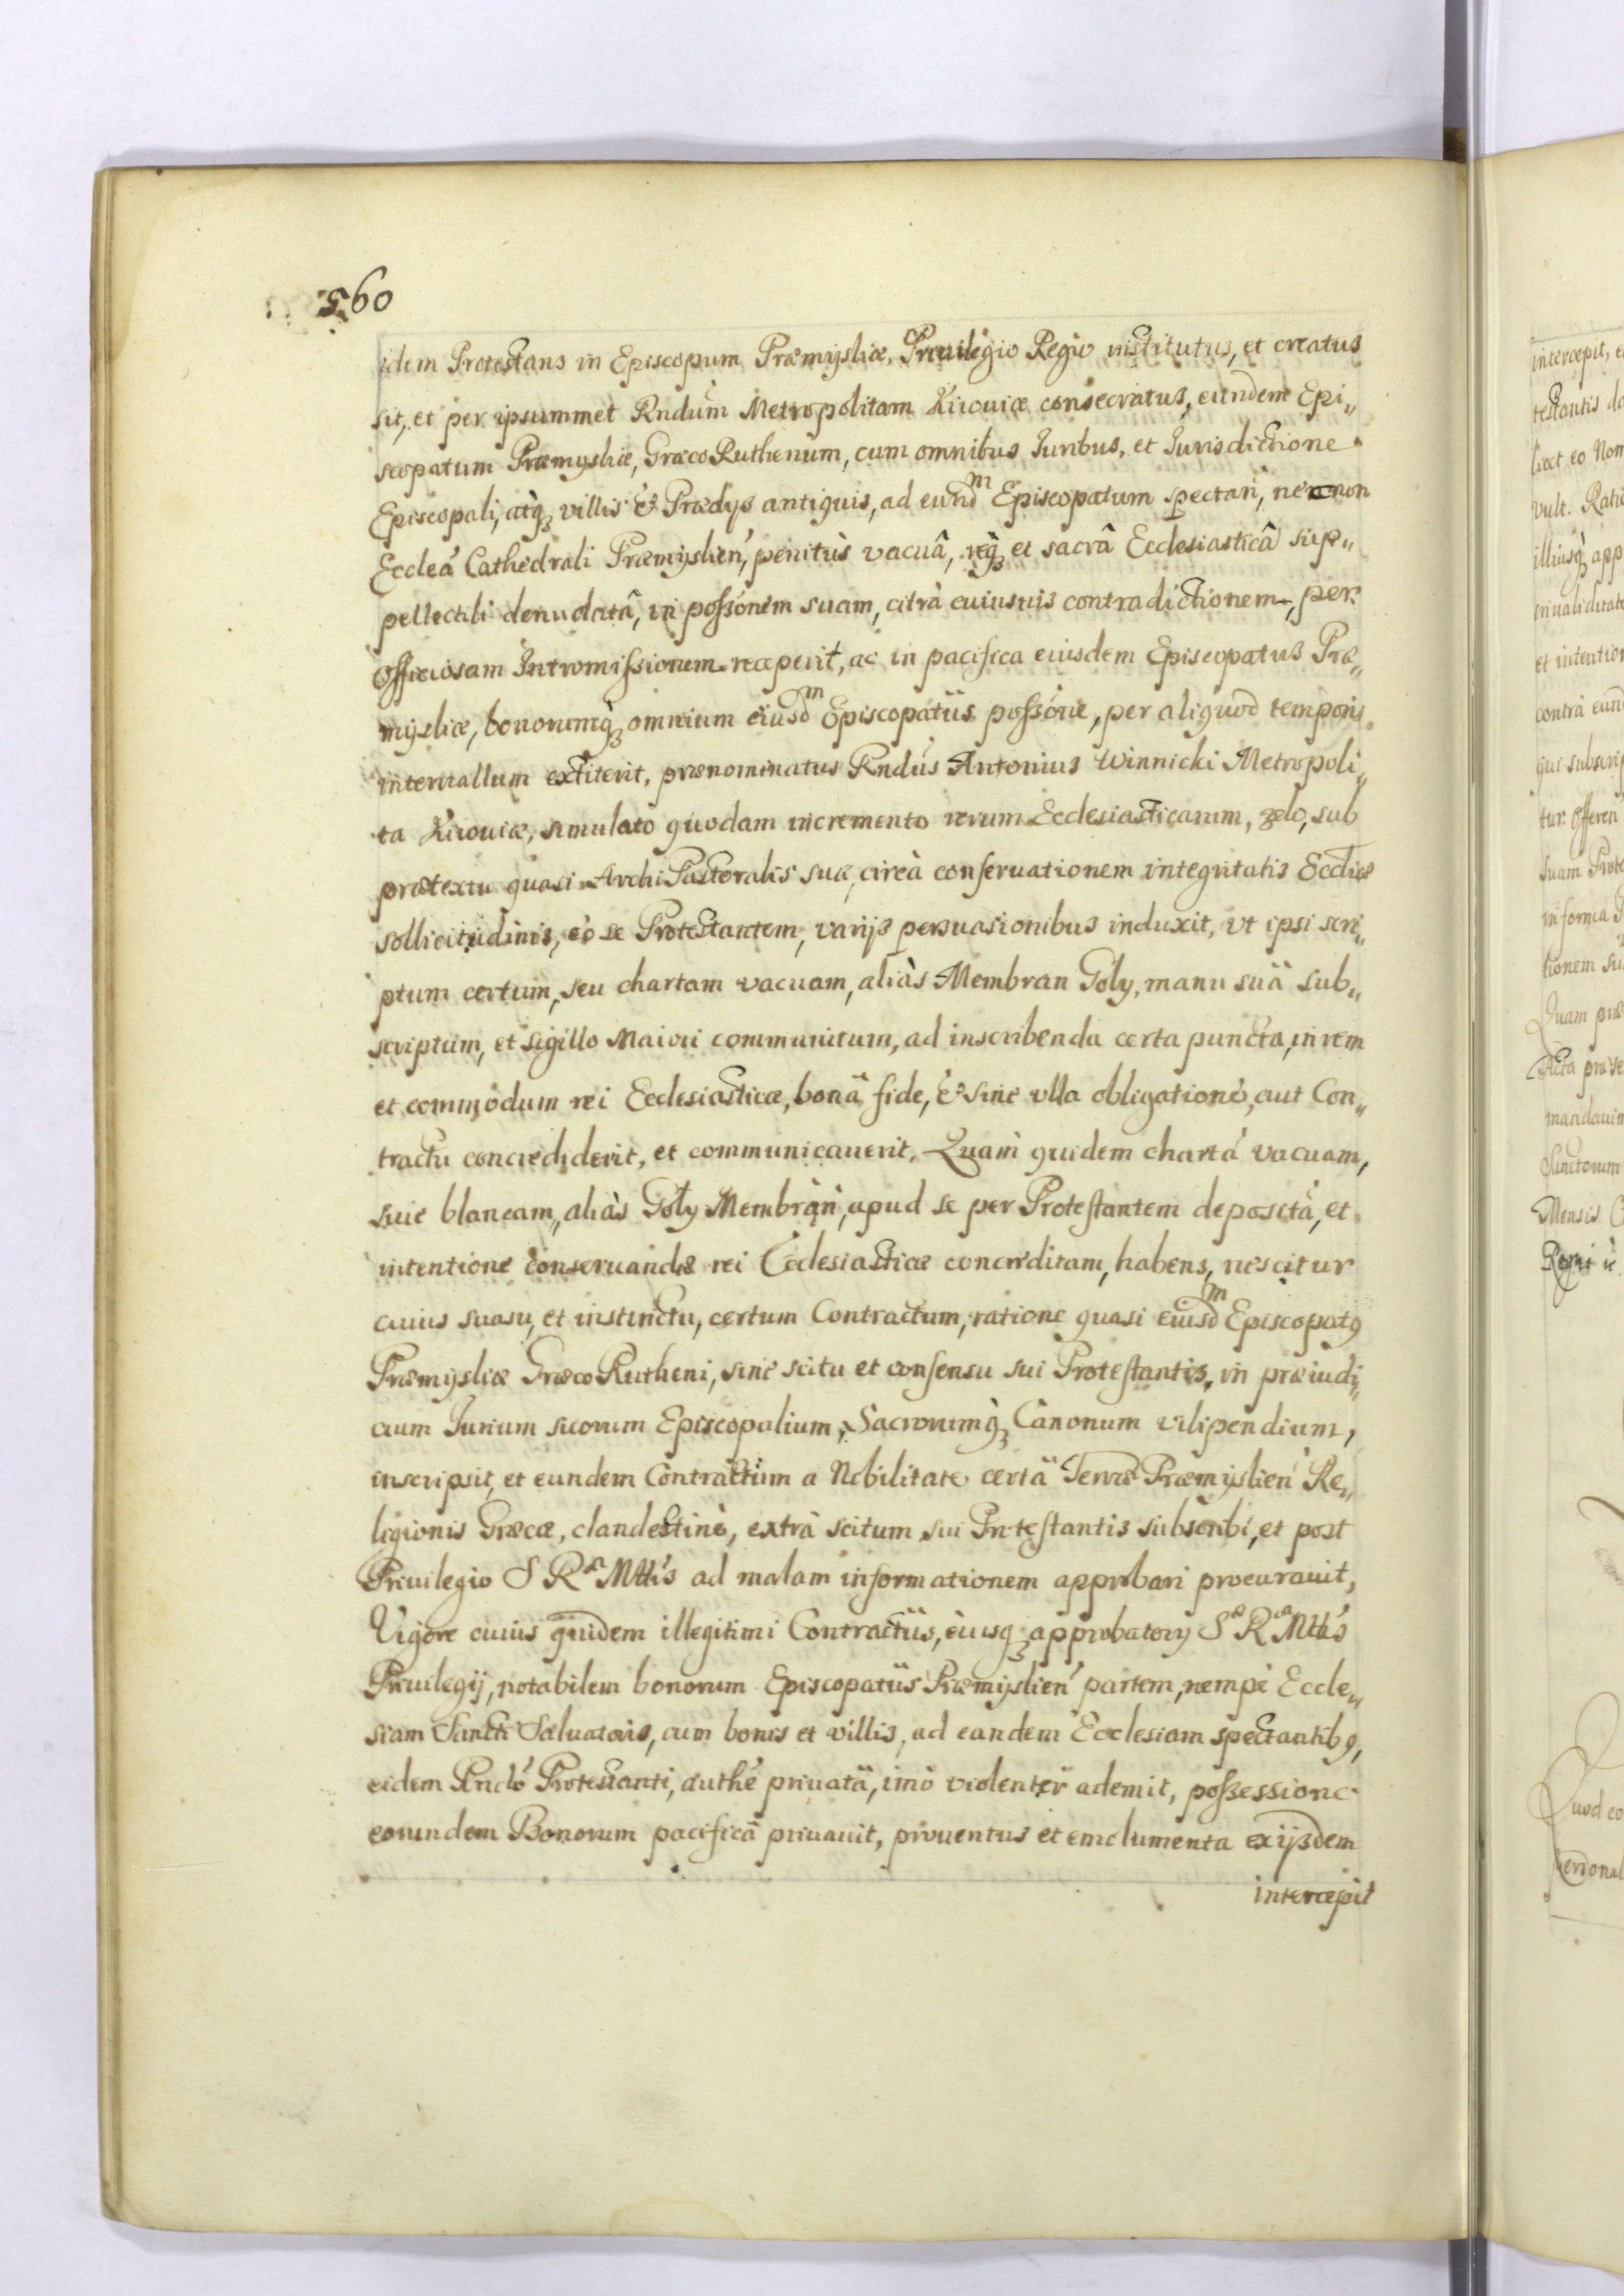 560
idem Protestans in Episcopum Præmysliæ, Privilegio Regio institutus, et creatus
sit, et per ipsummet Rndum Metropolitam Kiioviæ consecratus, eundem Epi„
scopatum Præmysliæ, GræcoRuthenum, cum omnibus Iuribus, et Iurisdictione
Episcopali, atq; villis & Prædys antiquis, ad eundm Episcopatum spectan, necnon
Ecclea Cathedrali Præmyslien, penitùs vacuâ, req; et sacrâ Ecclesiasticâ sup„
pellectili denudatâ, in possonem suam, citrà cuiusuis contradictionem, per
Officiosam Intromissionem receperit, ac in pacifica eiusdem Episcopatus Præ„
mysliæ, bonorumq; omnium eiusdm Episcopatûs possone, per aliquod temporis
interuallum extiterit, prænominatus Rndus Antonius Winnicki Metropoli„
ta Kiioviæ, simulato quodam incremento rerum Ecclesiasticarum, zelo, sub
prætextu quasi ArchiPastoralis suæ, circà conseruationem integritatis Eccliæ
sollicitudinis, eò se Protestantem, varijs persuasionibus induxit, vt ipsi scri„
ptum certum, seu chartam vacuam, aliàs Membran Goły, manu suâ sub„
scriptum, et sigillo Maiori communitum, ad inscribenda certa puncta, in rem
et commodum rei Ecclesiasticæ, bonâ fide, & sine vlla obligatione, aut Con„
tractu concrediderit, et communicauerit. Quam quidem chartá vacuam,
siue blancam, aliàs Goły Membran, apud se per Protestantem depositá, et
intentione conseruandæ rei Ecclesiasticæ concreditam, habens, nescitur
cuius suasu, et instinctu, certum Contractum, ratione quasi eiusdm Episcopatq
Præmysliæ GræcoRutheni, sine scitu et consensu sui Protestantis, in præiudi„
cium Iurium suorum Episcopalium, Sacrorumq; Canonum vilipendium,
inscripsit, et eundem Contractum a Nobilitate certâ Terræ Præmyslien Re„
ligionis Græcæ, clandestinè, extrà scitum sui Protestantis subscribi, et post
Priuilegio S Ræ Mttis ad malam informationem approbari procurauit,
Vigore cuius quidem illegitimi Contractûs, eiusq; approbatory Sæ Ræ Mttis
Priuilegij, notabilem bonorum Episcopatûs Præmyslien partem, nempè Eccle„
siam Sancti Saluatoris, cum bonis et villis, ad eandem Ecclesiam spectantibq,
eidem Rndo Protestanti, authe priuatâ, imò violenter ademit, possessione
eorundem Bonorum pacificâ priuauit, prouentus et emolumenta ex ijsdem
intercepit